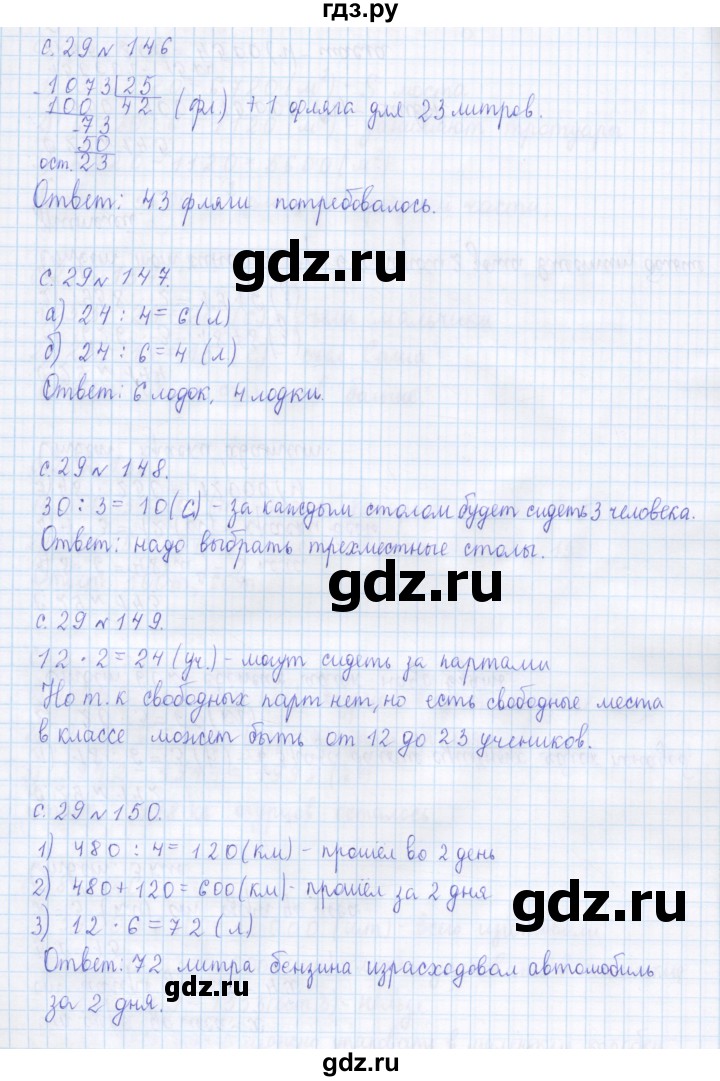 гдз.ру
с. 29 № 146
1073 | 25
100 42 (фл) + 1 фляга для 23 литров.
- 73
50
ост. 23
Ответ: 43 фляги потребовалось.
gdz.ru
с. 29 № 147.
а) 24 : 4 = 6 (л)
б) 24 : 6 = 4 (л)
Ответ: 6 лодок, 4 лодки.
с. 29 № 148.
30 : 3 = 10 (с) - за каждым столом будет сидеть 3 человека.
Ответ: надо выбрать трехместные столы.
gdz.ru
с. 29 № 149.
12 · 2 = 24 (уч.) - могут сидеть за партами
Но т. к свободных парт нет, но есть свободные места
в классе может быть от 12 до 23 учеников.
с. 29 № 150.
1) 480 : 4 = 120 (км) - прошел во 2 день
2) 480 + 120 = 600 (км) - прошёл за 2 дня
gdz.ru
3) 12 · 6 = 72 (л)
Ответ: 72 литра бензина израсходовал автомобиль
за 2 дня.
gdz.ru
gdz.ru